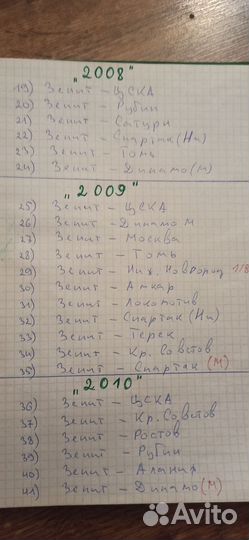 "2008"
19) Зенит - ЦСКА
20) Зенит - Рубин
21) Зенит - Сатурн
22) Зенит - Спартак (Нч)
23) Зенит - Томь
24) Зенит - Динамо (М)
"2009"
25) Зенит - ЦСКА
26) Зенит - Динамо М
27) Зенит - Москва
28) Зенит - Томь
29) Зенит - Ниж. Новгород 1/8
30) Зенит - Амкар
31) Зенит - Локомотив
32) Зенит - Спартак (Нч)
33) Зенит - Терек
34) Зенит - Кр. Советов
35) Зенит - Спартак (М)
"2010"
36) Зенит - ЦСКА
37) Зенит - Кр. Советов
38) Зенит - Ростов
39) Зенит - Рубин
40) Зенит - Алания
41) Зенит - Динамо (М)
Avito